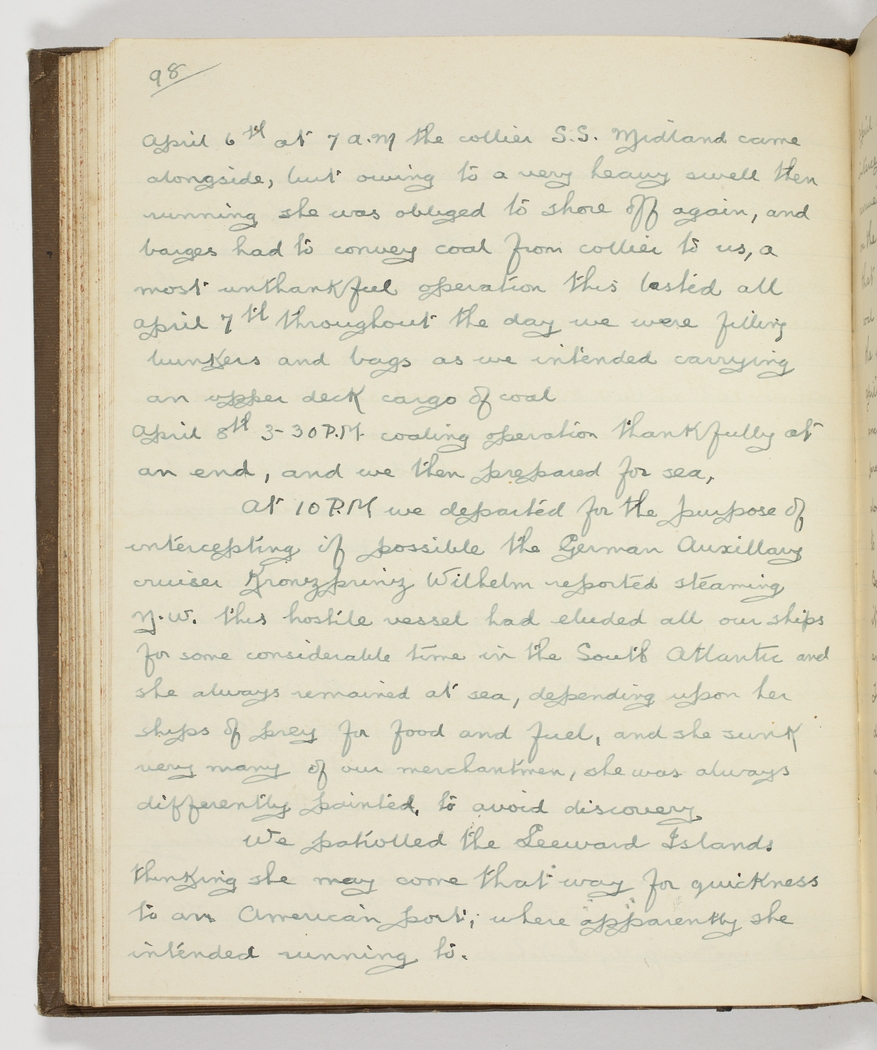 98
April 6th at 7 a.m the collier S.S. Midland came
alongside, but owing to a very heavy swell then
running she was obliged to shore off again, and
barges had to convey coal from collier to us, a
most unthankful operation this lasted all
April 7th throughout the day we were filling
bunkers and bags as we intended carrying
an upper deck cargo of coal
April 8th 3-30 P.M. coaling operation thankfully at
an end, and we then prepared for sea,
At 10 P.M we departed for the purpose of
intercepting if possible the German Auxillary
cruiser Kronzprinz Wilhelm reported steaming
N.W. this hostile vessel had eluded all our ships
for some considerable time in the South Atlantic and
she always remained at sea, depending upon her
ships of prey for food and fuel, and she sunk
very many of our merchantmen, she was always
differently painted, to avoid discovery
We patrolled the Leeward Islands
thinking she may come that way for quickness
to an American port, where apparently she
intended running to.